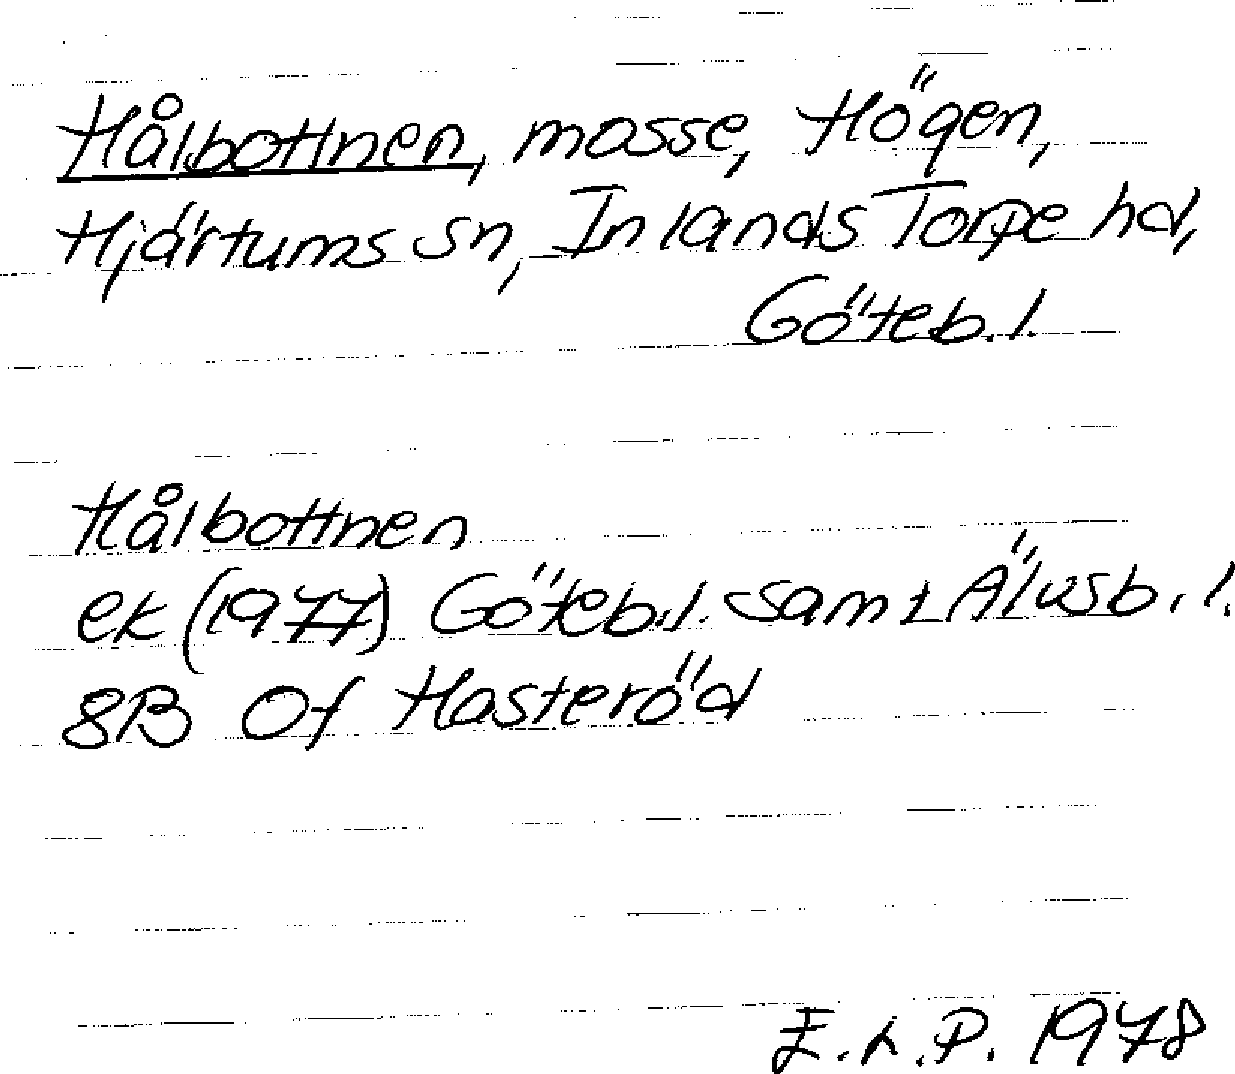 Hålbottnen, mosse, Högen,
Hjärtums sn, Inlands Torpe hd,
Göteb. l.
Hålbottnen
ek (1977) Göteb. l. samt Älvsb. l.
8B 0f Hasteröd
E.L.P. 1978